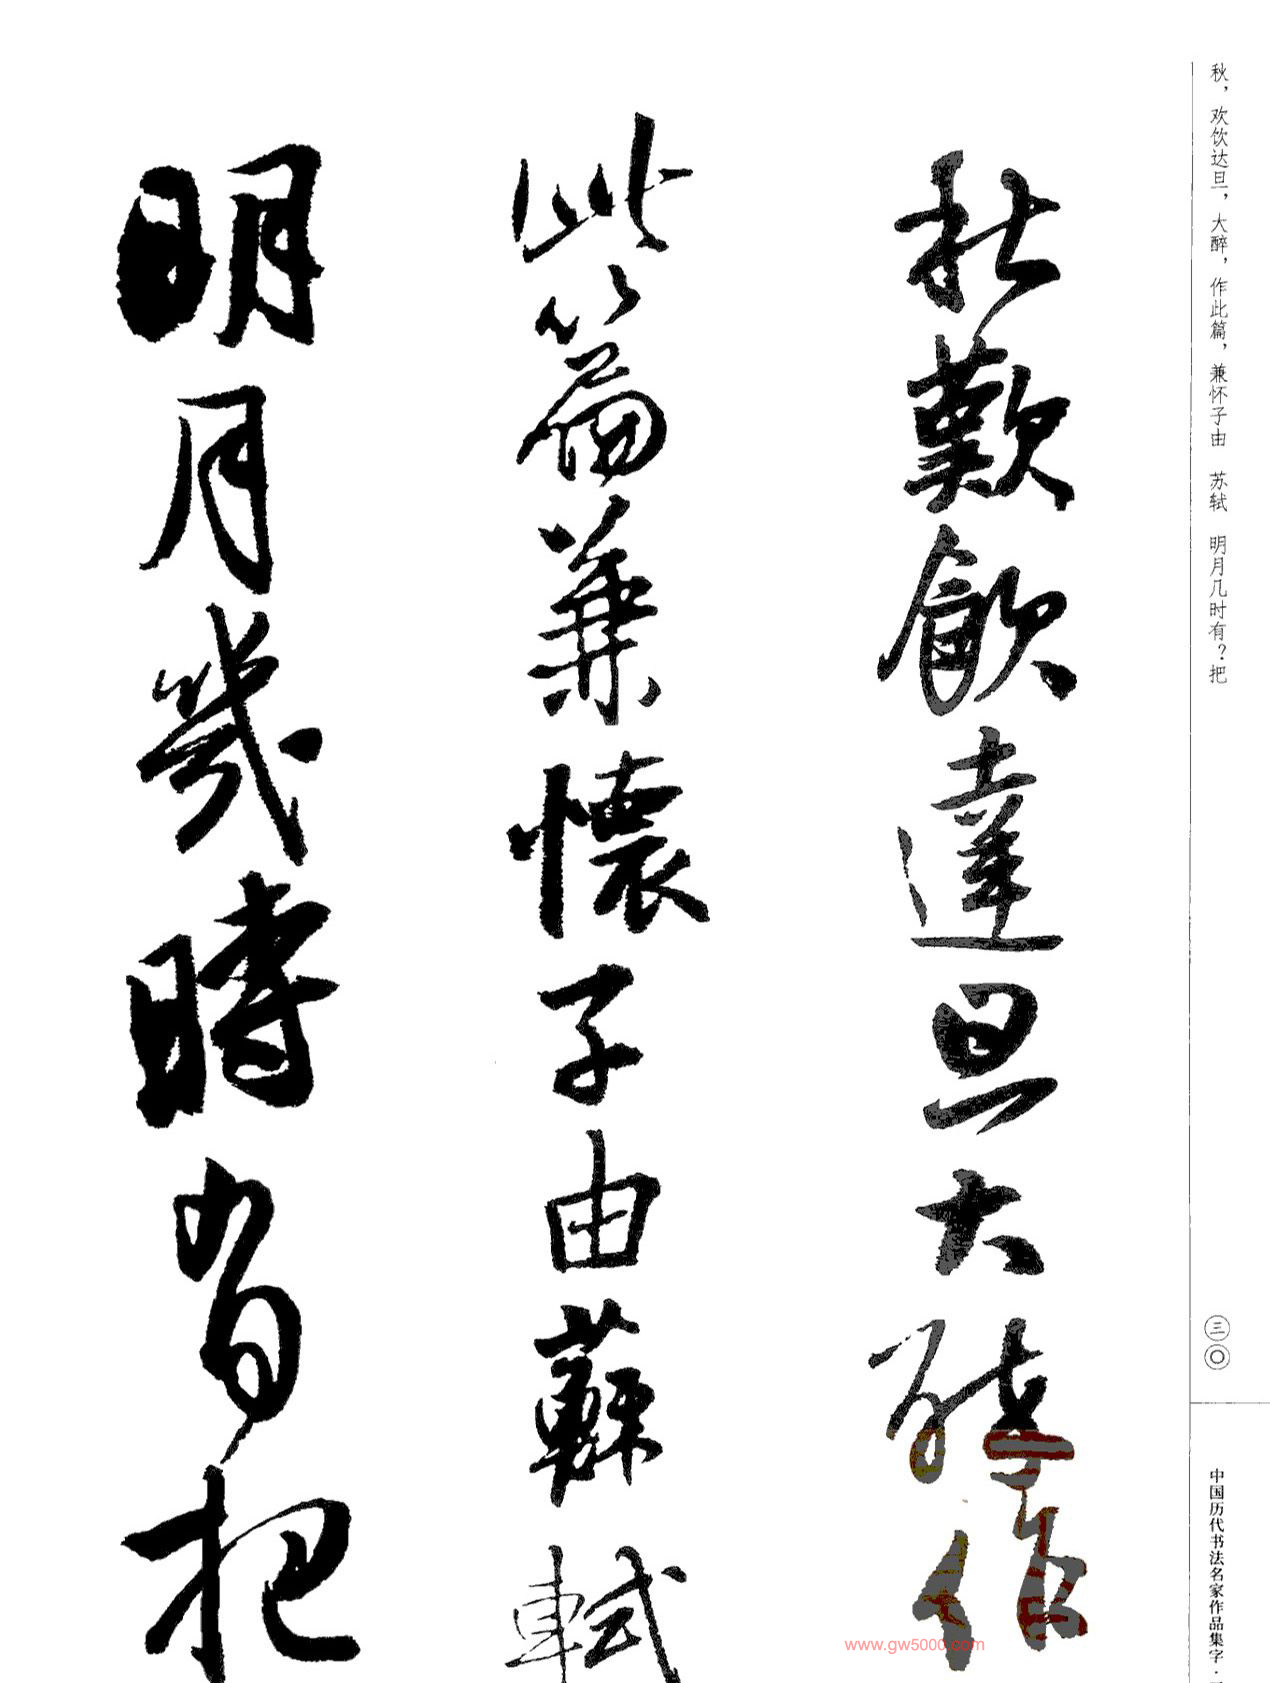 秋，欢饮达旦，大醉，作此篇，兼怀子由　苏轼　明月几时有？把
三〇
中国历代书法名家作品集字·
秋歡飲達旦大醉作
此篇兼懷子由蘇軾
明月幾時有把
www.gw5000.com